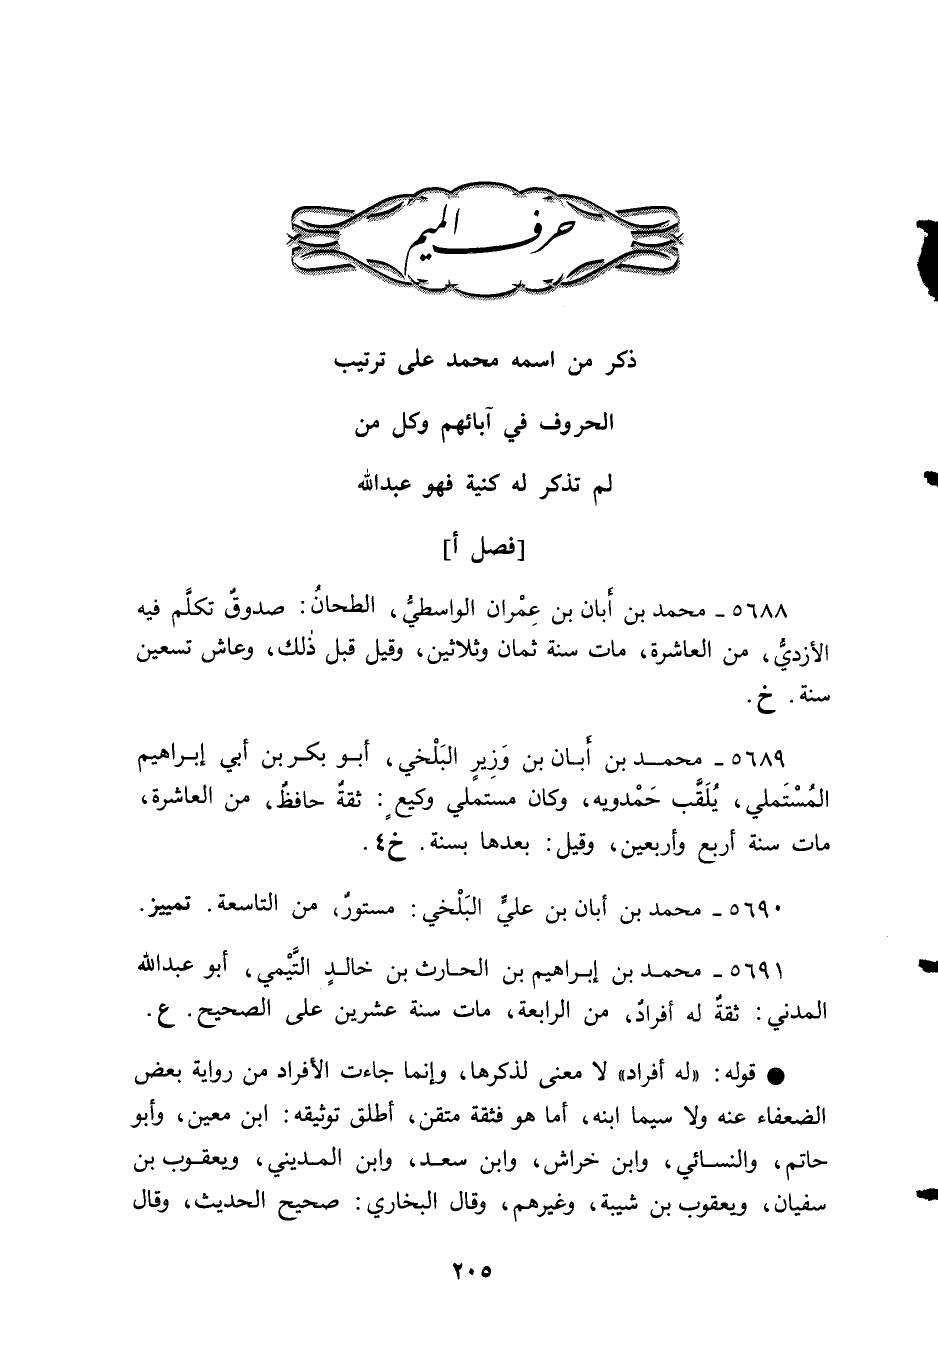 حرف الميم
ذكر من اسمه محمد على ترتيب
الحروف في آبائهم وكل من
لم تذكر له كنية فهو عبدالله
[فصل أ]
٥٦٨٨ ـ محمد بن أَبان بن عِمْران الواسطيُّ، الطحانُ: صدوقٌ تكلَّم فيه
الأزديُّ، من العاشرة، مات سنة ثمان وثلاثين، وقيل قبل ذٰلك، وعاش تسعين
سنة. خ.
٥٦٨٩ ـ محمـــد بن أَبـان بن وَزِيرٍ البَلْخي، أبـو بكـر بن أبي إبـراهيم
المُسْتَملي، يُلَقَّب حَمْدويه، وكان مستملي وكيعٍ: ثقةٌ حافظٌ، من العاشرة،
مات سنة أربع وأربعين، وقيل: بعدها بسنة. خ٤.
٥٦٩٠ ـ محمد بن أبان بن عليٍّ البَلْخي: مستورٌ، من التاسعة. تمييز.
٥٦٩١ ـ محمـد بن إبـراهيم بن الحـارث بن خالـدٍ التَّيْمي، أبو عبدالله
المدني: ثقةٌ له أفرادٌ، من الرابعة، مات سنة عشرين على الصحيح. ع.
● قوله: «له أفراد» لا معنى لذكرها، وإنما جاءت الأفراد من رواية بعض
الضعفاء عنه ولا سيما ابنه، أما هو فثقة متقن، أطلق توثيقه: ابن معين، وأبو
حاتم، والنسـائي، وابن خراش، وابن سعـد، وابن المـديني، ويعقـوب بن
سفيان، ويعقوب بن شيبة، وغيرهم، وقال البخاري: صحيح الحديث، وقال
٢٠٥